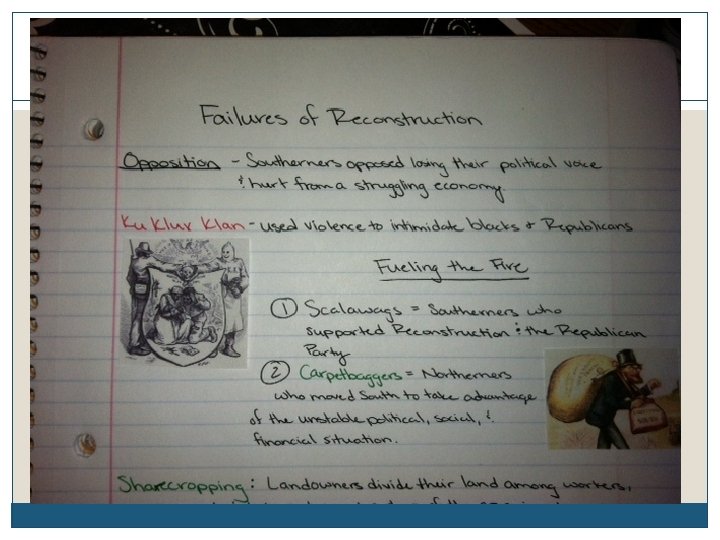 Failures of Reconstruction
Opposition - Southerners opposed losing their political voice
& hurt from a struggling economy.
Ku Klux Klan - used violence to intimidate blacks & Republicans
Fueling the Fire
① Scalawags = Southerners who
supported Reconstruction & the Republican
Party
② Carpetbaggers = Northerners
who moved South to take advantage
of the unstable political, social, &
financial situation.
Sharecropping: Landowners divide their land among workers,